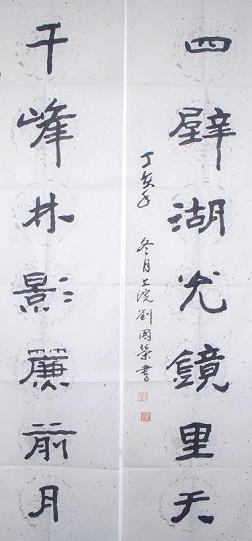 四壁湖光鏡里天
丁亥年冬月上浣劉國榮書
千峰林影簾前月